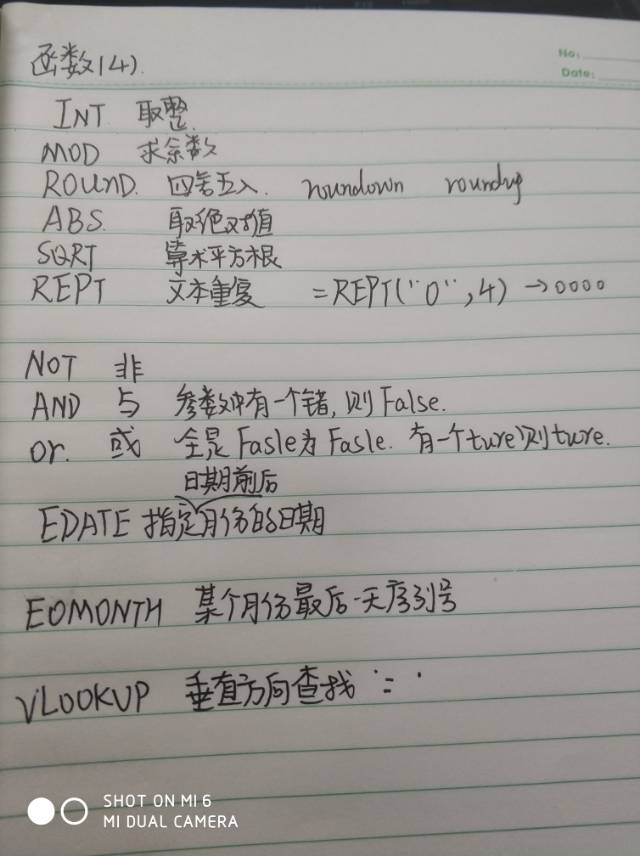 函数(4).
No:
Date:
INT 取整
MOD 求余数
ROUND. 四舍五入. roundown roundup
ABS. 取绝对值
SQRT 算术平方根
REPT 文本重复 =REPT("0",4) →0000
NOT 非
AND 与 参数中有一个错,则False.
or. 或 全是Fasle为Fasle. 有一个ture则ture.
日期前后
EDATE 指定月份的日期
EOMONTH 某个月份最后一天序列号
VLOOKUP 垂直方向查找
SHOT ON MI 6
MI DUAL CAMERA